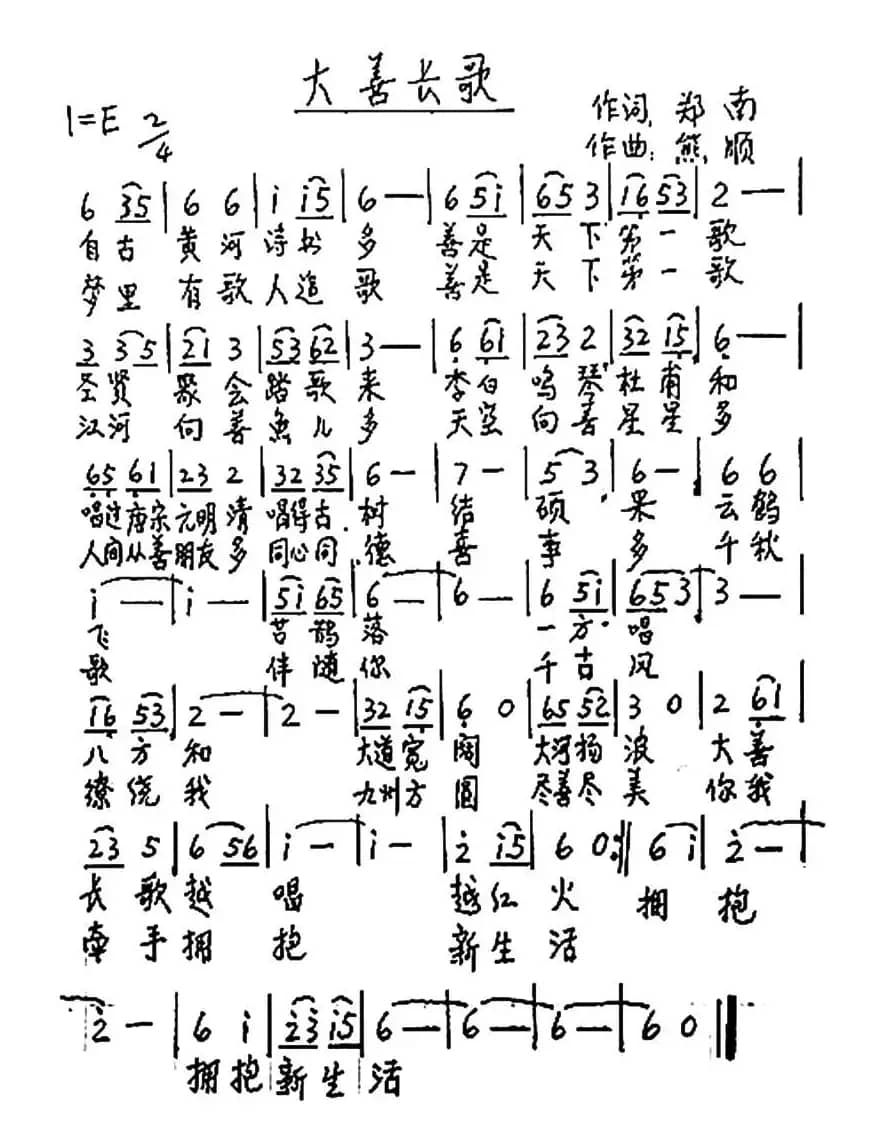 大善长歌
1=E 2/4
作词:郑南
作曲:熊顺
6 35 | 6 6 | i i5 | 6 — | 6 5i | 65 3 | 16 53 | 2 — |
自古黄河诗书多 善是天下第一歌
梦里有歌人追歌 善是天下第一歌
3 35 | 21 3 | 53 62 | 3 — | 6 61 | 23 2 | 32 15 | 6 — |
圣贤聚会踏歌来 李白鸣琴杜甫和
江河向善鱼儿多 天空向善星星多
65 61 | 23 2 | 32 35 | 6 — | 7 — | 5 3 | 6 — | 6 6 |
唱过唐宋元明清 唱得古树结硕果 云鹤
人间从善朋友多 同心同德喜事多 千秋
i — | i — | 5i 65 | 6 — | 6 — | 6 5i | 653 | 3 — |
飞 苦鹊落 一方唱
歌 伴随你 千古风
16 53 | 2 — | 2 — | 32 15 | 6 0 | 65 52 | 3 0 | 2 61 |
八方和 大道宽阔 大河扬波 大善
缭绕我 九州方圆 尽善尽美 你我
23 5 | 6 56 | i — | i — | 2 i5 | 6 0 :|| 6 i | 2 — |
长歌越唱 越红火 拥抱
牵手拥抱 新生活
2 — | 6 i | 23 i5 | 6 — | 6 — | 6 — | 6 0 ||
拥抱新生活